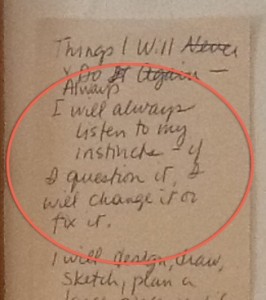 Things I Will Never
& Do It Again —
Always
I will always
listen to my
instincts - if
I question it, I
will change it or
fix it.
I will design, draw,
sketch, plan a